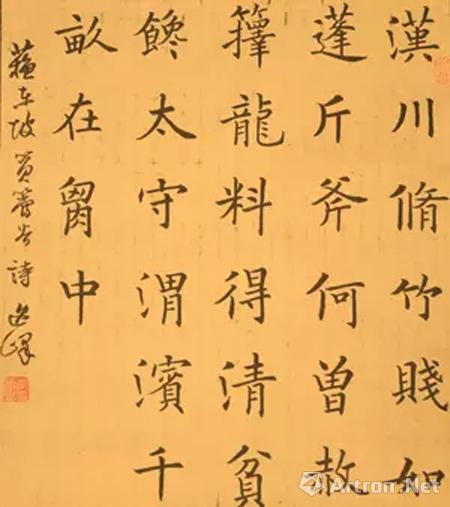 漢川脩竹賤如
蓬斤斧何曾赦
籜龍料得清貧
饞太守渭濱千
畝在胷中
蘇東坡篔簹谷詩
Artron.Net